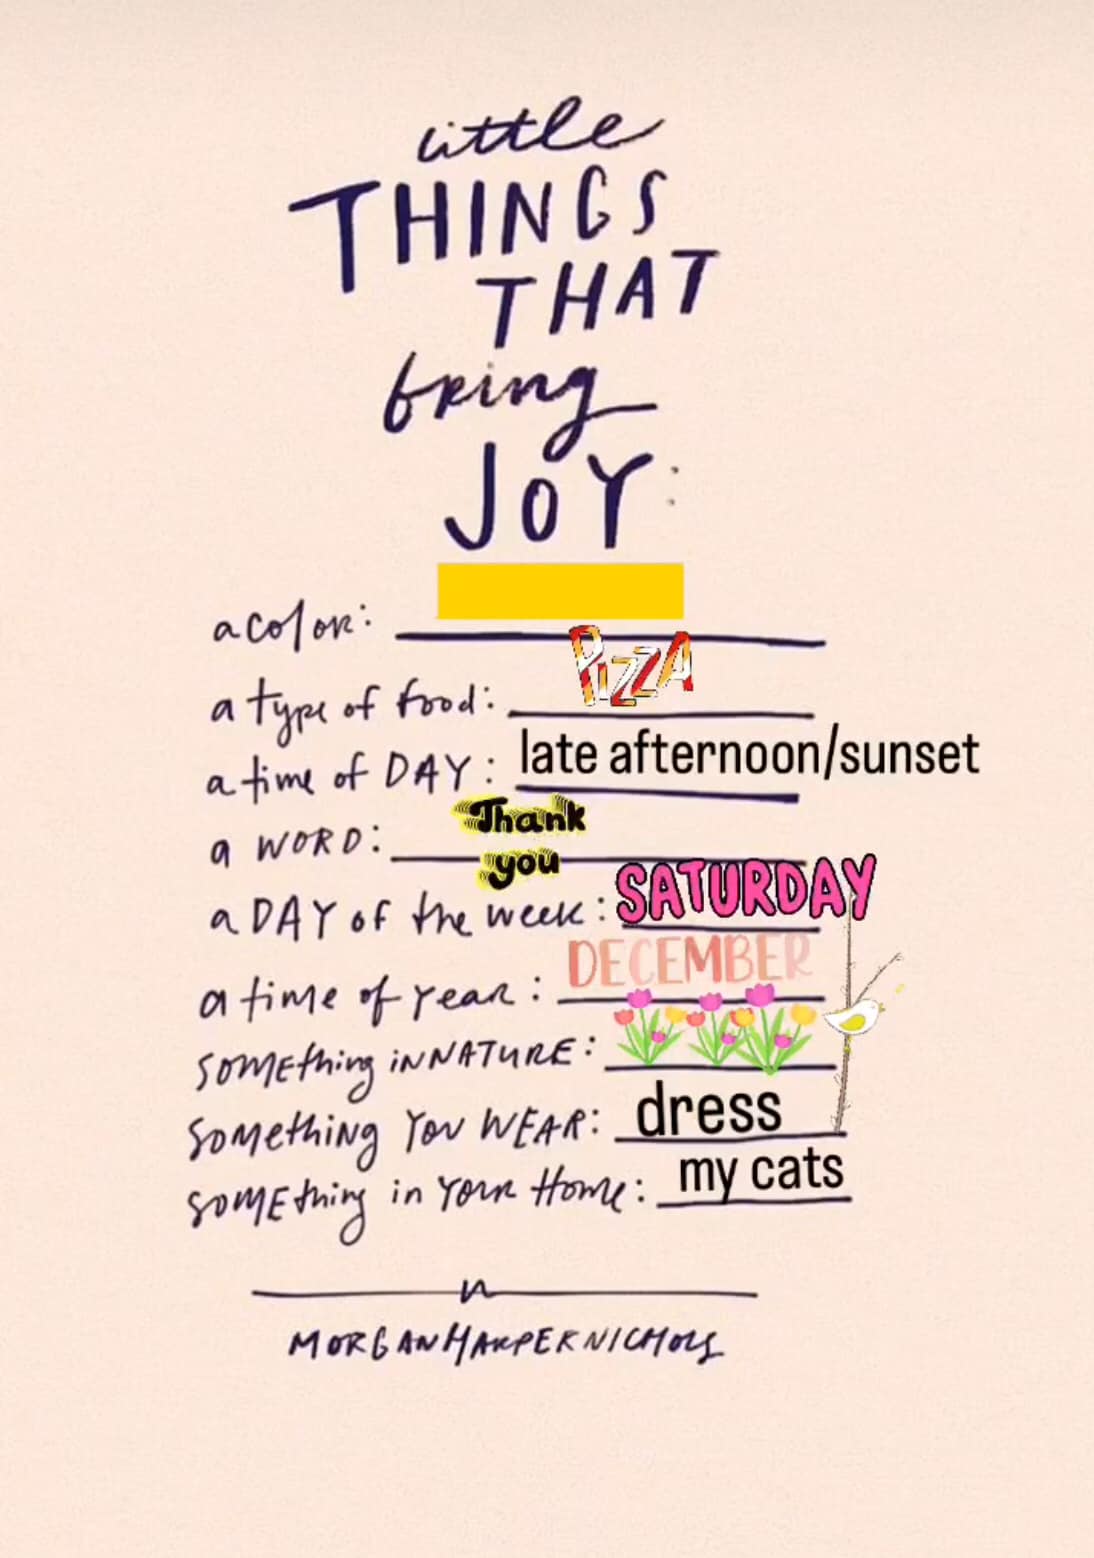 little
THINGS
THAT
bring
JOY:
a color:
a type of food: PIZZA
a time of DAY: late afternoon/sunset
a WORD: Thank
you
a DAY of the week: SATURDAY
a time of year: DECEMBER
SOMEthing iN NATURE:
SOMething YOU WEAR: dress
SOMEthing in YOUR Home: my cats
MORGAN HARPER NICHOLS